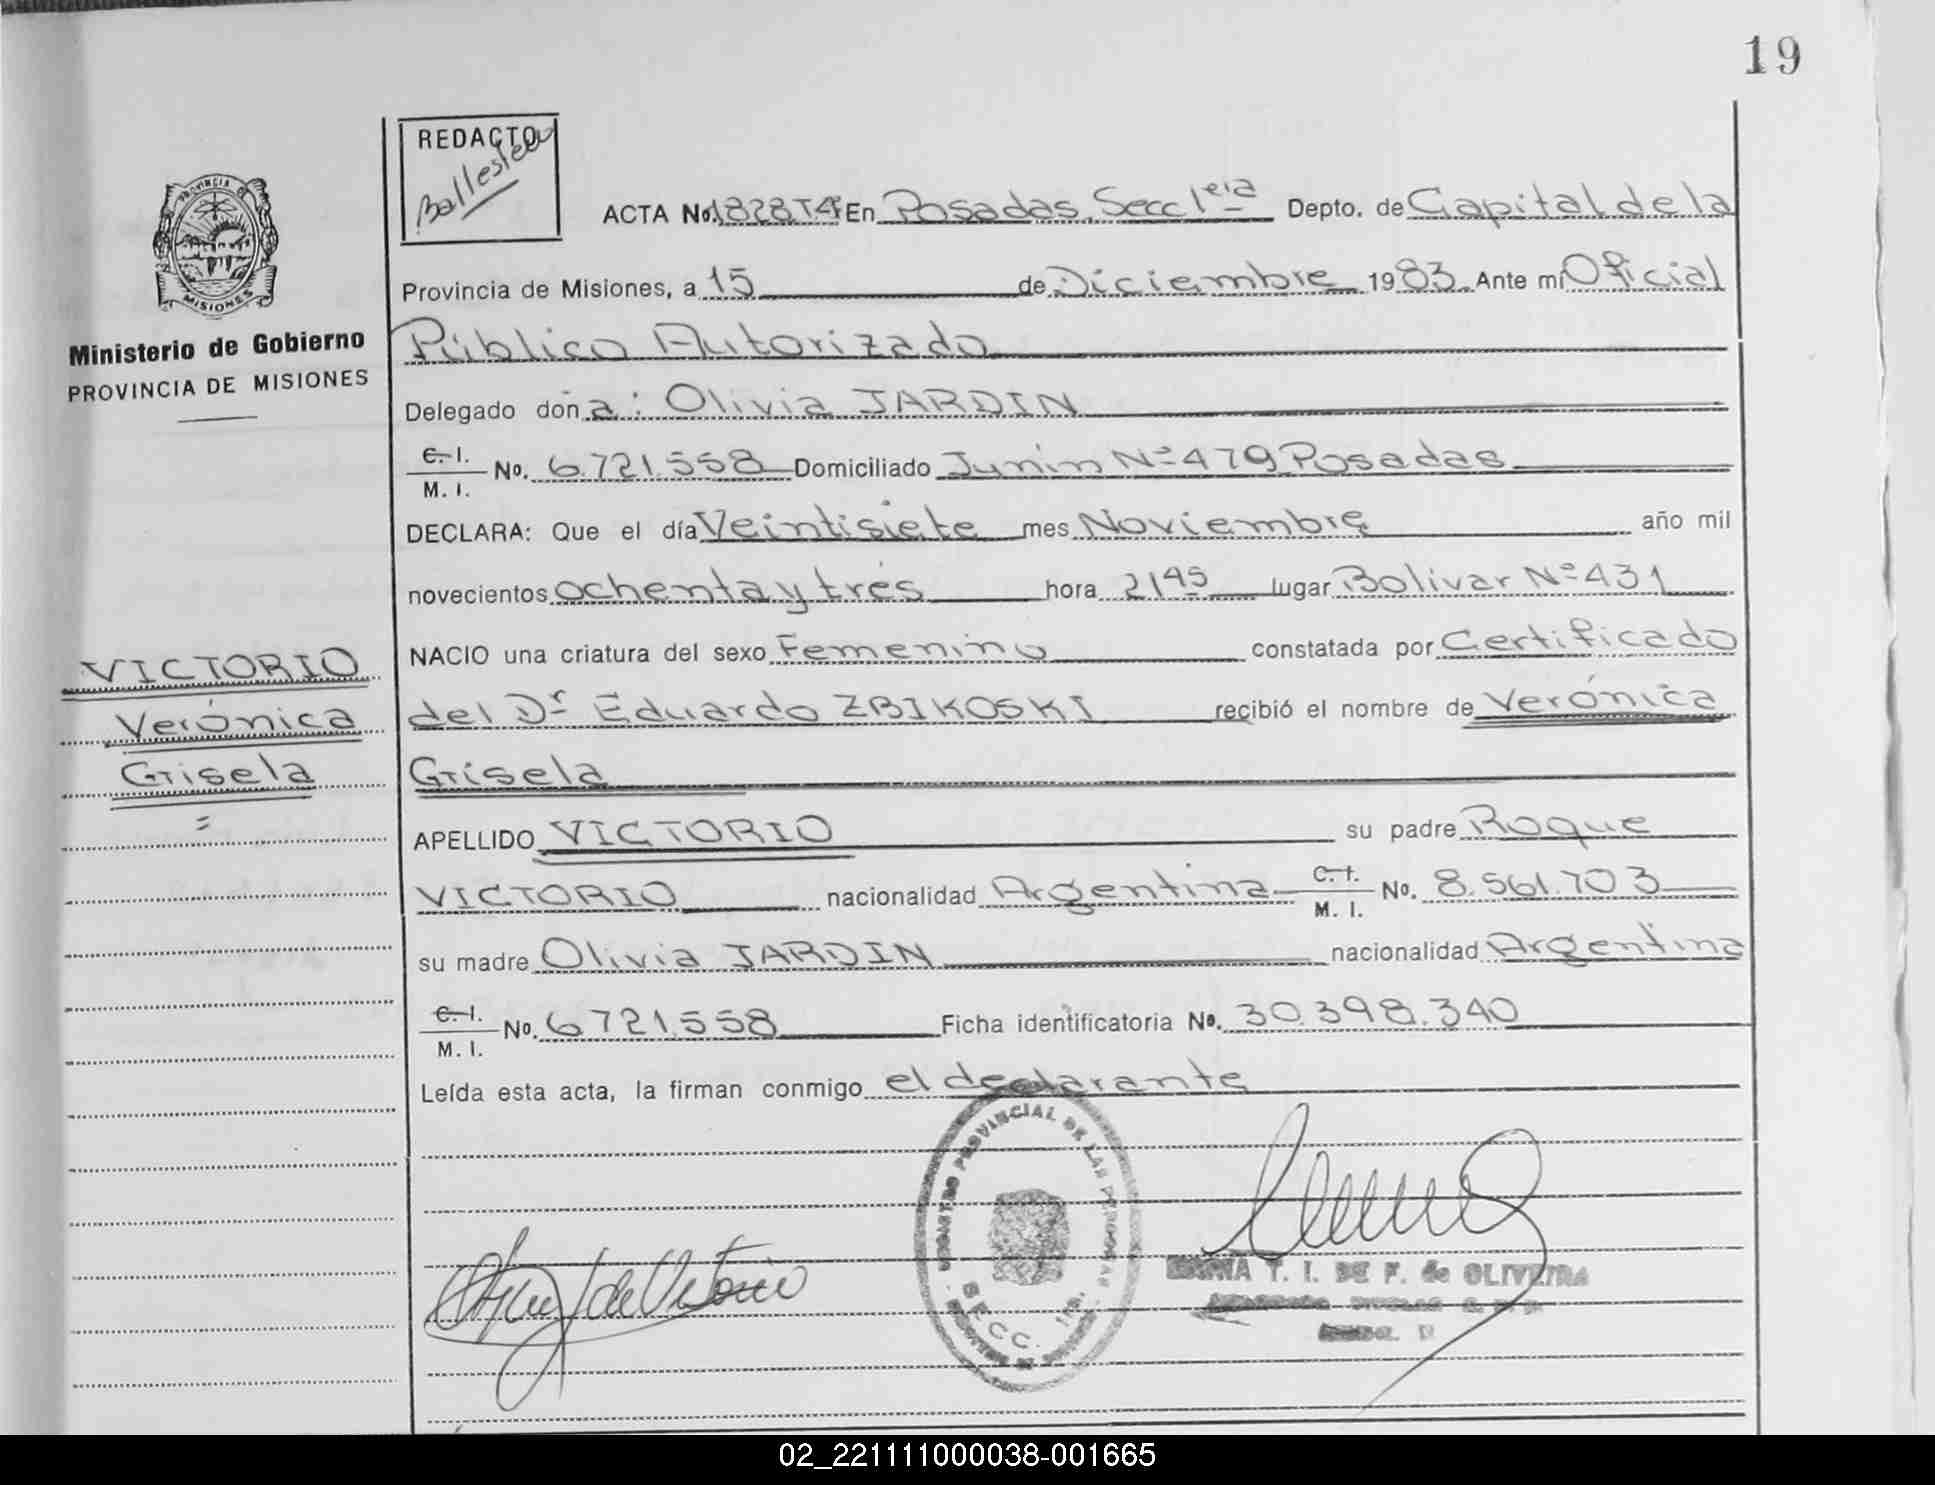 19
REDACTO
Ballesteu
ACTA No. 1828T4º En Posadas, Secc 1era Depto. de Capital de la
Provincia de Misiones, a 15 de Diciembre 1983. Ante mi Oficial
Público Autorizado
Delegado don a: Olivia JARDIN
C. I.
M. I. No. 6.721.558 Domiciliado Junín Nº 479 Posadas
DECLARA: Que el día Veintisiete mes Noviembre año mil
novecientos ochenta y tres hora 21 45 lugar Bolívar Nº 431
NACIO una criatura del sexo Femenino constatada por Certificado
del Dr Eduardo ZBIKOSKI recibió el nombre de Verónica
Grisela
APELLIDO VICTORIO su padre Roque
VICTORIO nacionalidad Argentina C. I. M. I. No. 8.561.703
su madre Olivia JARDIN nacionalidad Argentina
C. I.
M. I. No. 6.721.558 Ficha identificatoria No. 30.398.340
Leída esta acta, la firman conmigo el declarante
PROVINCIA DE
MISIONES
Ministerio de Gobierno
PROVINCIA DE MISIONES
VICTORIO
Verónica
Grisela
REGISTRO PROVINCIAL DE LAS PERSONAS
SECC. 1ra.
T. I. DE F. de OLIVEIRA
02_221111000038-001665